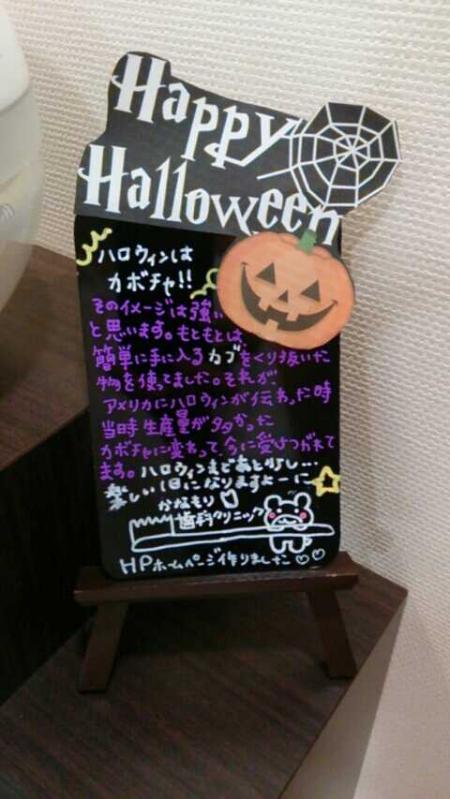 Happy
Halloween
ハロウィンは
カボチャ!!
そのイメージは強い
と思います。もともとは、
簡単に手に入るカブをくり抜いた
物を使ってました。それが、
アメリカにハロウィンが伝わった時
当時生産量が多かった
カボチャに変わって、今に受けつがれて
ます。ハロウィンまであと少し...
楽しい1日になりますよーに
かなもり♡
歯科クリニック
HPホームページ作りました♡♡